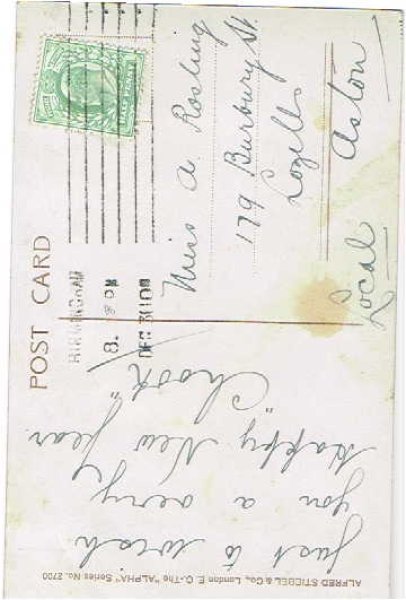 POST CARD
BIRMINGHAM
8. PM
DEC 31 08
Just to wish
you a very
Happy New Year
"Chook"
Miss A Rosling
179 Burbury St.
Lozells
Aston
Local
ALFRED STIEBEL & Co., London E.C.-The "ALPHA" Series No. 2700